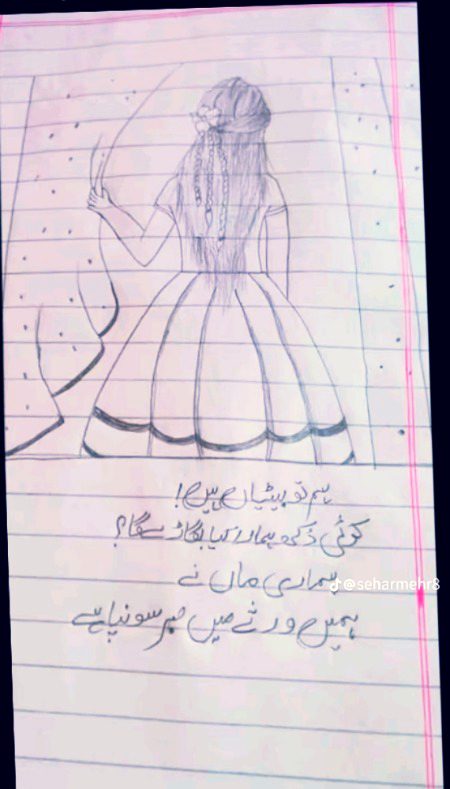 ہم تو بیٹیاں ہیں!
کوئی دکھ ہمارا کیا بگاڑے گا؟
ہماری ماں نے
@seharmehr8
ہمیں ورثے میں صبر سونپا ہے